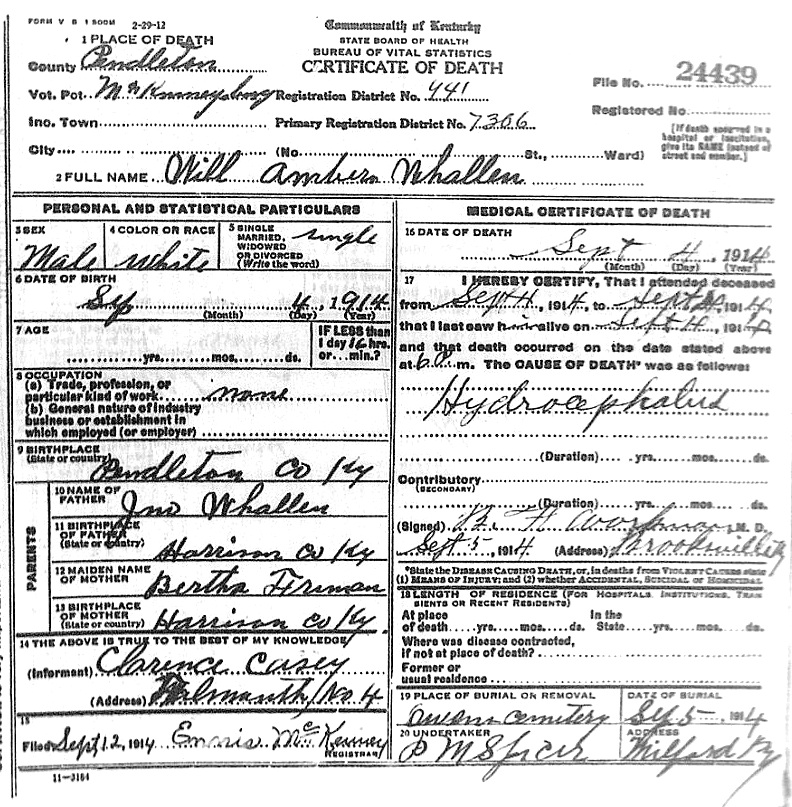 FORM V B 1 500M 2-29-12
1 PLACE OF DEATH
County Pendleton
Vot. Pct McKinneysburg
Inc. Town
City
Commonwealth of Kentucky
STATE BOARD OF HEALTH
BUREAU OF VITAL STATISTICS
CERTIFICATE OF DEATH
Registration District No. 441
Primary Registration District No. 7306
(No. St., Ward)
File No. 24439
Registered No
[If death occurred in a
hospital or institution,
give its NAME instead of
street and number.]
2 FULL NAME Will Ambers Whallen
PERSONAL AND STATISTICAL PARTICULARS
3 SEX
Male
4 COLOR OR RACE
White
5 SINGLE
MARRIED,
WIDOWED
OR DIVORCED
(Write the word)
single
6 DATE OF BIRTH
Sep 4, 1914
(Month) (Day) (Year)
7 AGE
yrs. mos. ds.
IF LESS than
1 day 16 hrs.
or min.?
8 OCCUPATION
(a) Trade, profession, or
particular kind of work none
(b) General nature of industry
business or establishment in
which employed (or employer)
9 BIRTHPLACE
(State or country) Pendleton Co Ky
PARENTS
10 NAME OF
FATHER Jno Whallen
11 BIRTHPLACE
OF FATHER
(State or country) Harrison Co Ky
12 MAIDEN NAME
OF MOTHER Bertha Firman
13 BIRTHPLACE
OF MOTHER
(State or country) Harrison Co Ky.
14 THE ABOVE IS TRUE TO THE BEST OF MY KNOWLEDGE
(Informant) Clarence Casey
(Address) Falmouth/No 4
15
Filed Sept 12, 1914 Ennis McKenney
REGISTRAR
11-3184
MEDICAL CERTIFICATE OF DEATH
16 DATE OF DEATH
Sept 4, 1914
(Month) (Day) (Year)
17 I HEREBY CERTIFY, That I attended deceased
from Sept 4, 1914, to Sept 4, 1914
that I last saw him alive on Sept 4, 1914
and that death occurred on the date stated above
at 6 P m. The CAUSE OF DEATH* was as follows:
Hydrocephalus
(Duration) yrs. mos. ds.
Contributory
(SECONDARY)
(Duration) yrs. mos. ds.
(Signed) H. Woorkman, M. D.
Sept 5, 1914 (Address) Brooksville Ky
*State the DISEASE CAUSING DEATH, or, in deaths from VIOLENT CAUSES state
(1) MEANS OF INJURY; and (2) whether ACCIDENTAL, SUICIDAL or HOMICIDAL
18 LENGTH OF RESIDENCE (FOR HOSPITALS, INSTITUTIONS, TRAN
SIENTS OR RECENT RESIDENTS)
At place In the
of death yrs. mos. ds. State yrs. mos. ds.
Where was disease contracted,
if not at place of death?
Former or
usual residence
19 PLACE OF BURIAL OR REMOVAL
Owens cemetery
DATE OF BURIAL
Sep 5, 1914
20 UNDERTAKER
P M Spicer
ADDRESS
Milford Ky